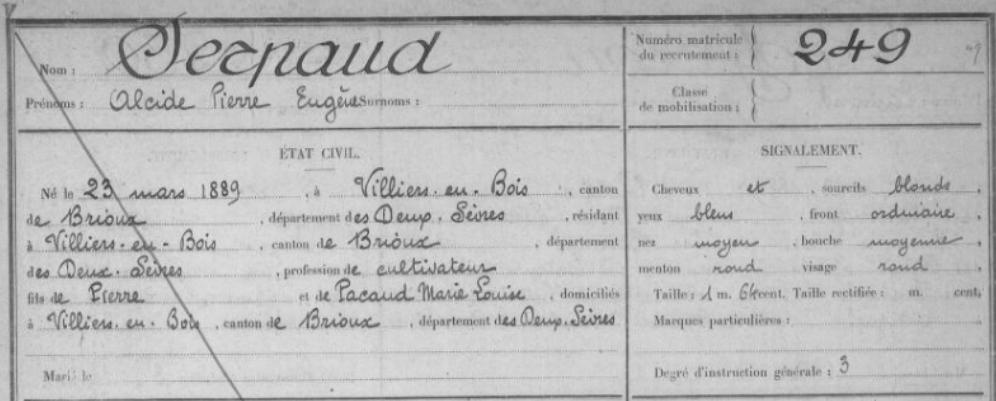 Nom : Dernaud
Prénoms : Alcide Pierre Eugène Surnoms :
Numéro matricule du recrutement : 249
Classe de mobilisation :
ÉTAT CIVIL.
Né le 23 mars 1889, à Villiers-en-Bois, canton
de Brioux, département des Deux-Sèvres, résidant
à Villiers-en-Bois, canton de Brioux, département
des Deux-Sèvres, profession de cultivateur
fils de Pierre et de Pacaud Marie Louise, domiciliés
à Villiers-en-Bois, canton de Brioux, département des Deux-Sèvres
Marié le
SIGNALEMENT.
Cheveux et, sourcils blonds,
yeux bleus, front ordinaire,
nez moyen, bouche moyenne,
menton rond visage rond,
Taille : 1 m. 64 cent. Taille rectifiée : m. cent.
Marques particulières :
Degré d'instruction générale : 3